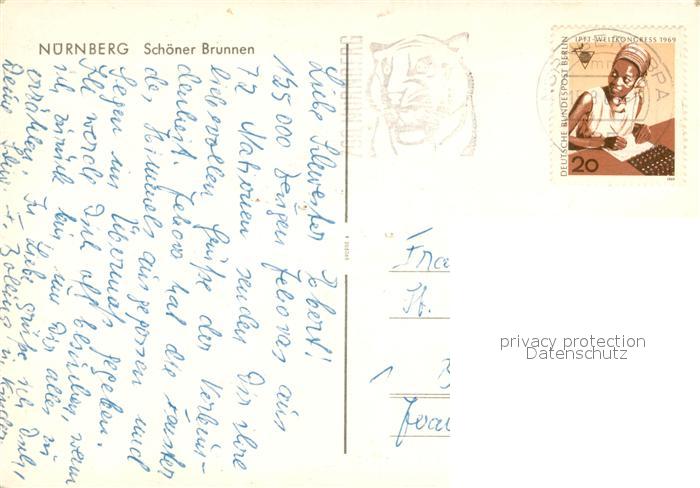 NÜRNBERG Schöner Brunnen
Liebe Schwester Ebert!
135 000 Zeugen Jehovas aus
72 Nationen senden Dir ihre
liebevollen Grüße der Verbun-
denheit. Jehova hat die Fenster
des Himmels ausgegossen und
Segen im Übermaß gegeben.
Ich werde Dich oft besuchen, wenn
ich zurück bin, um Dir alles zu
erzählen. In Liebe grüße ich Dich,
Deine Schw.
IPTT-WELTKONGRESS 1969
DEUTSCHE BUNDESPOST BERLIN
20
1969
Frau
privacy protection
Datenschutz